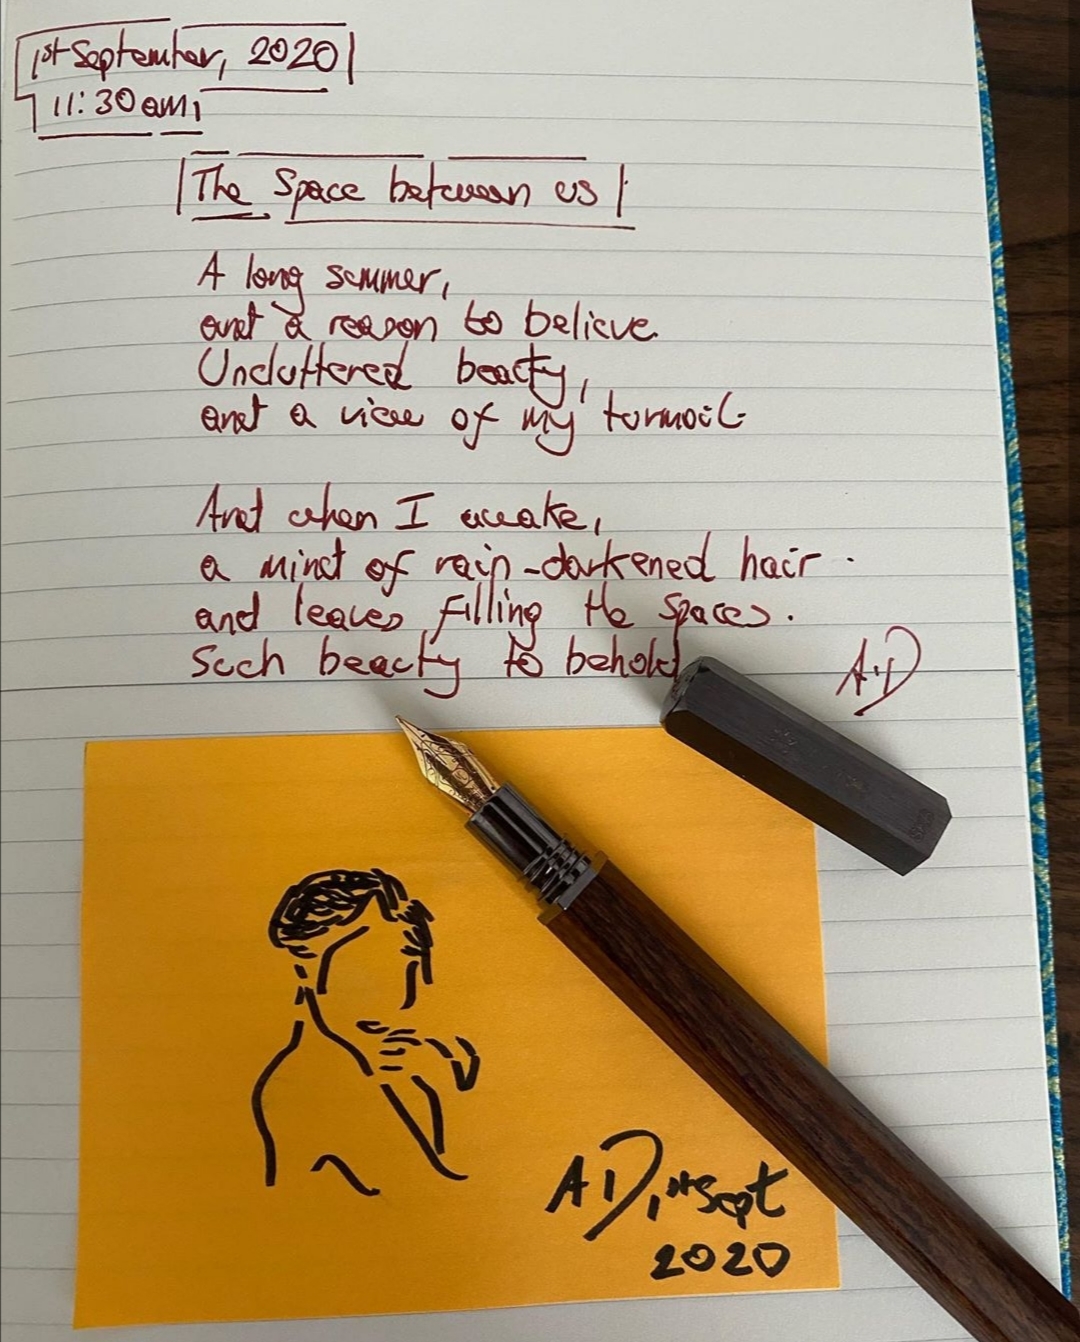 1st September, 2020
11:30am,
The Space between us
A long summer,
and a reason to believe.
Uncluttered beauty,
and a view of my turmoil.
And when I awake,
a mind of rain-darkened hair.
and leaves filling the spaces.
Such beauty to behold
A.D
AD, 1st Sept
2020